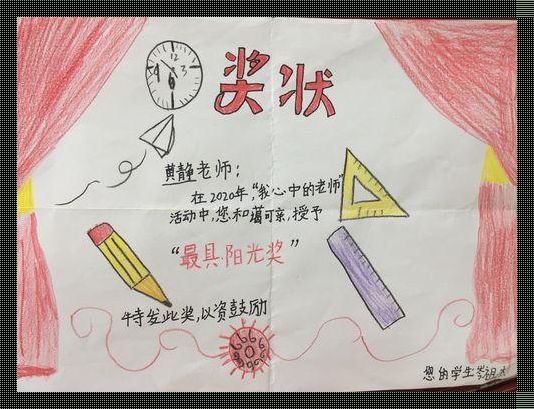 12
3
6
奖状
黄静老师：
在2020年，“我心中的老师”
活动中，您和蔼可亲，授予
“最具阳光奖”
特发此奖，以资鼓励
您的学生